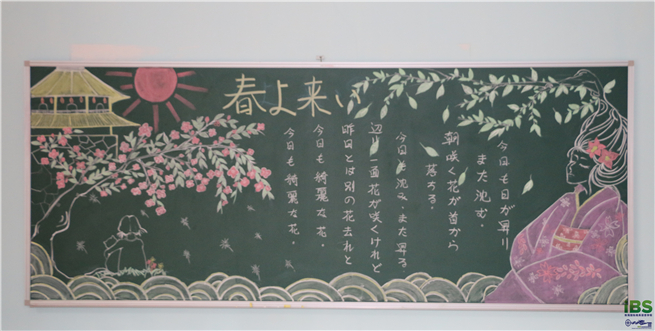 春よ来い
今日も日が昇り
また沈む.
朝咲く花が首から
落ちる.
今日も沈み、また昇る
辺り一面花が咲くけれど
昨日とは別の花去れと
今日も綺麗な花.
今日も綺麗な花.
IBS